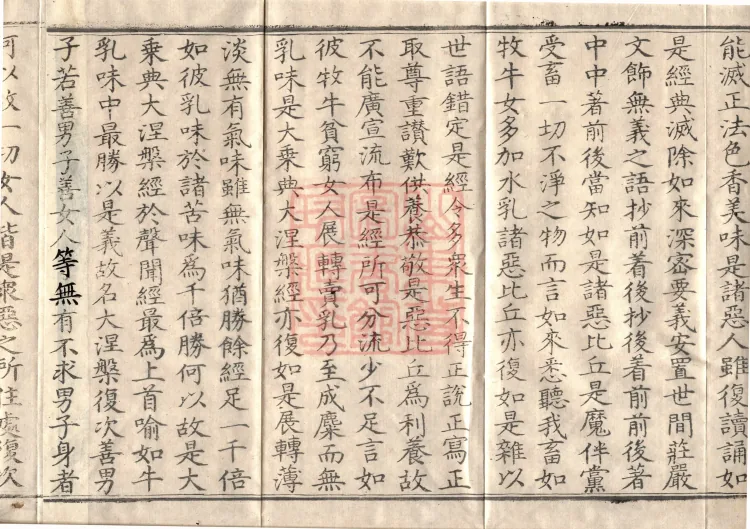 能滅正法色香美味是諸惡人雖復讀誦如
是經典滅除如來深密要義安置世間莊嚴
文飾無義之語抄前着後抄後着前前後著
中中著前後當知如是諸惡比丘是魔伴黨
受畜一切不淨之物而言如來悉聽我畜如
牧牛女多加水乳諸惡比丘亦復如是雜以
世語錯定是經令多衆生不得正說正寫正
取尊重讃歎供養恭敬是惡比丘爲利養故
不能廣宣流布是經所可分流少不足言如
彼牧牛貧窮女人展轉賣乳乃至成麋而無
乳味是大乗典大涅槃經亦復如是展轉薄
淡無有氣味雖無氣味猶勝餘經足一千倍
如彼乳味於諸苦味爲千倍勝何以故是大
乗典大涅槃經於聲聞經最爲上首喻如牛
乳味中最勝以是義故名大涅槃復次善男
子若善男子善女人等無有不求男子身者
何以故一切女人皆是衆惡之所住處復次